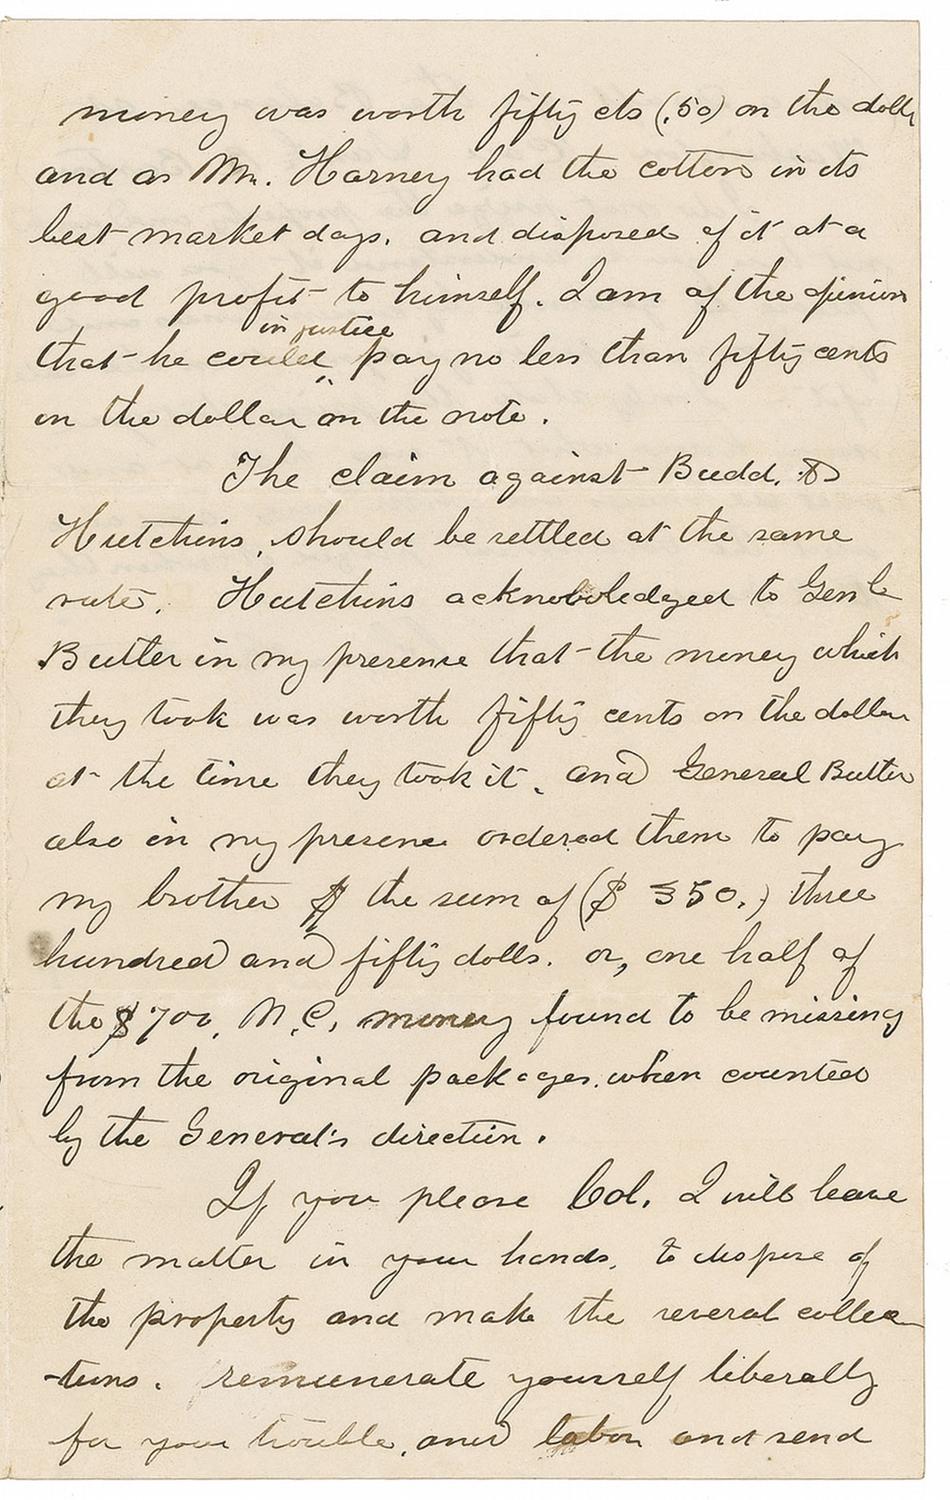 money was worth fifty cts (.50) on the doll
and as Mr. Harney had the cotton in its
best market days. and disposed of it at a
good profit to himself. I am of the opinion
in justice
that he could pay no less than fifty cents
on the dollar on the note.
The claim against Budd. &
Hutchins, should be settled at the same
rate. Hutchins acknowledged to Genl
Butler in my presense that the money which
they took was worth fifty cents on the dollar
at the time they took it. and General Butler
also in my presence ordered them to pay
my brother the sum of ($ 350.) three
hundred and fifty dolls. or, one half of
the $700. N.C. money found to be missing
from the original packages. when counted
by the General's direction.
If you please Col. I will leave
the matter in your hands. to dispose of
the property and make the several collec-
-tions. remunerate yourself liberally
for your trouble, and labor and send